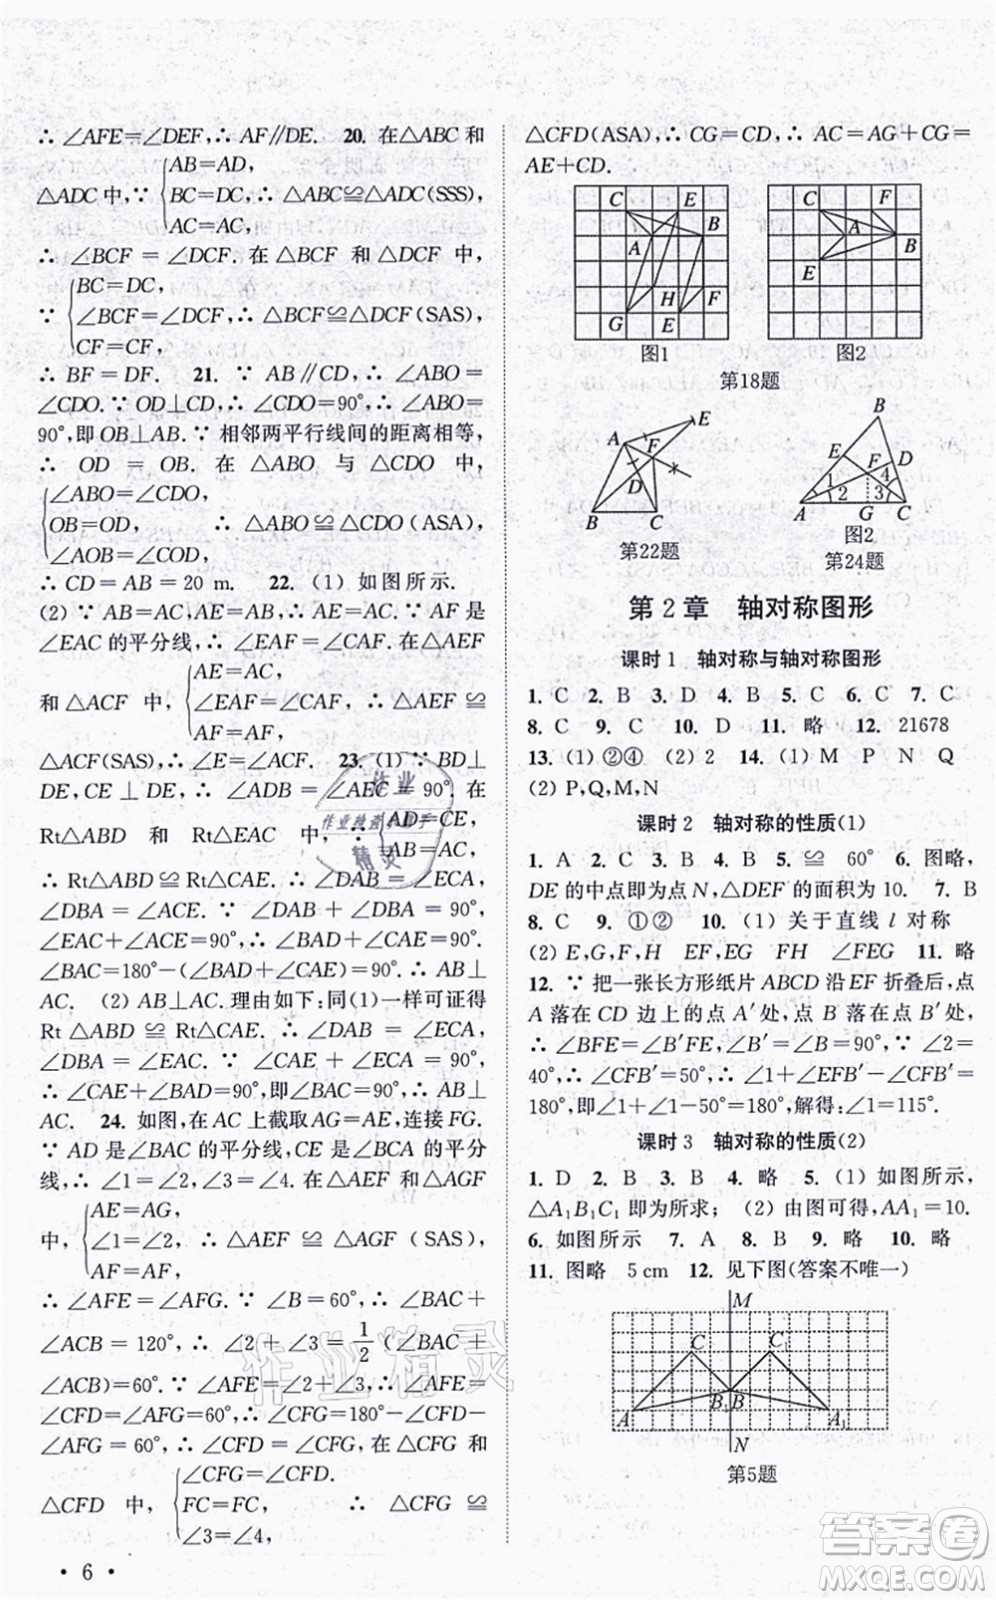 ∴ ∠AFE=∠DEF,∴ AF∥DE. 20. 在△ABC 和
△ADC 中,∵ {AB=AD, BC=DC, AC=AC, ∴ △ABC≌△ADC(SSS),
∴ ∠BCF = ∠DCF. 在 △BCF 和 △DCF 中,
∵ {BC=DC, ∠BCF=∠DCF, CF=CF, ∴ △BCF≌△DCF(SAS),
∴ BF = DF. 21. ∵ AB∥CD, ∴ ∠ABO =
∠CDO. ∵ OD⊥CD,∴ ∠CDO=90°,∴ ∠ABO=
90°,即 OB⊥AB. ∵ 相邻两平行线间的距离相等,
∴ OD = OB. 在 △ABO 与 △CDO 中,
{∠ABO=∠CDO, OB=OD, ∠AOB=∠COD, ∴ △ABO ≌ △CDO (ASA),
∴ CD = AB = 20 m. 22. (1) 如图所示.
(2) ∵ AB=AC,AE=AB,∴ AE=AC. ∵ AF 是
∠EAC 的平分线,∴ ∠EAF = ∠CAF. 在△AEF
和 △ACF 中, {AE=AC, ∠EAF=∠CAF, AF=AF, ∴ △AEF ≌
△ACF(SAS),∴ ∠E=∠ACF. 23. (1) ∵ BD⊥
DE,CE ⊥ DE, ∴ ∠ADB = ∠AEC = 90°. 在
Rt△ABD 和 Rt△EAC 中, ∵ {AD=CE, AB=AC,
∴ Rt△ABD ≌ Rt△CAE. ∴ ∠DAB = ∠ECA,
∠DBA = ∠ACE. ∵ ∠DAB + ∠DBA = 90°,
∠EAC+∠ACE=90°,∴ ∠BAD+∠CAE=90°.
∠BAC=180°−(∠BAD+∠CAE)=90°. ∴ AB⊥
AC. (2) AB⊥AC.理由如下:同(1)一样可证得
Rt △ABD ≌ Rt△CAE. ∴ ∠DAB = ∠ECA,
∠DBA = ∠EAC. ∵ ∠CAE + ∠ECA = 90°,
∴ ∠CAE+∠BAD=90°,即∠BAC=90°,∴ AB⊥
AC. 24. 如图,在 AC 上截取 AG=AE,连接 FG.
∵ AD 是∠BAC 的平分线,CE 是∠BCA 的平分
线,∴ ∠1=∠2,∠3=∠4. 在△AEF 和△AGF
中, {AE=AG, ∠1=∠2, AF=AF, ∴ △AEF ≌ △AGF (SAS),
∴ ∠AFE = ∠AFG. ∵ ∠B = 60°,∴ ∠BAC +
∠ACB = 120°, ∴ ∠2 + ∠3 = 1/2 (∠BAC +
∠ACB) = 60°. ∵ ∠AFE=∠2+∠3, ∴ ∠AFE =
∠CFD=∠AFG=60°,∴ ∠CFG=180°−∠CFD−
∠AFG = 60°, ∴ ∠CFD = ∠CFG, 在 △CFG 和
△CFD 中, {∠CFG=∠CFD. FC=FC, ∠3=∠4, ∴ △CFG ≌
• 6 •
△CFD(ASA),∴ CG=CD,∴ AC=AG+CG=
AE+CD.
C E B A H F G E
图1
C F A B E
图2
第18题
A E F D B C
第22题
B E F D 1 2 4 3 A G C
图2
第24题
第 2 章 轴对称图形
课时 1 轴对称与轴对称图形
1. C 2. B 3. D 4. B 5. C 6. C 7. C
8. C 9. C 10. D 11. 略 12. 21678
13. (1) ②④ (2) 2 14. (1) M P N Q
(2) P,Q,M,N
课时 2 轴对称的性质(1)
1. A 2. C 3. B 4. B 5. ≌ 60° 6. 图略,
DE 的中点即为点 N,△DEF 的面积为 10. 7. B
8. C 9. ①② 10. (1) 关于直线 l 对称
(2) E,G,F,H EF FH ∠FEG 11. 略
12. ∵ 把一张长方形纸片 ABCD 沿 EF 折叠后,点
A 落在 CD 边上的点 A′处,点 B 落在点 B′处,
∴ ∠BFE=∠B′FE,∠B′=∠B=90°. ∵ ∠2=
40°,∴ ∠CFB′=50°,∴ ∠1+∠EFB′−∠CFB′=
180°,即∠1+∠1−50°=180°,解得:∠1=115°.
课时 3 轴对称的性质(2)
1. D 2. B 3. C 4. 略 5. (1) 如图所示,
△A₁B₁C₁ 即为所求; (2) 由图可得,AA₁=10.
6. 如图所示 7. A 8. B 9. 略 10. 略
11. 图略 5 cm 12. 见下图(答案不唯一)
M
C C₁
A B₁ B A₁
N
第5题
作业
精灵
作业精灵
答案卷
MXQE.COM